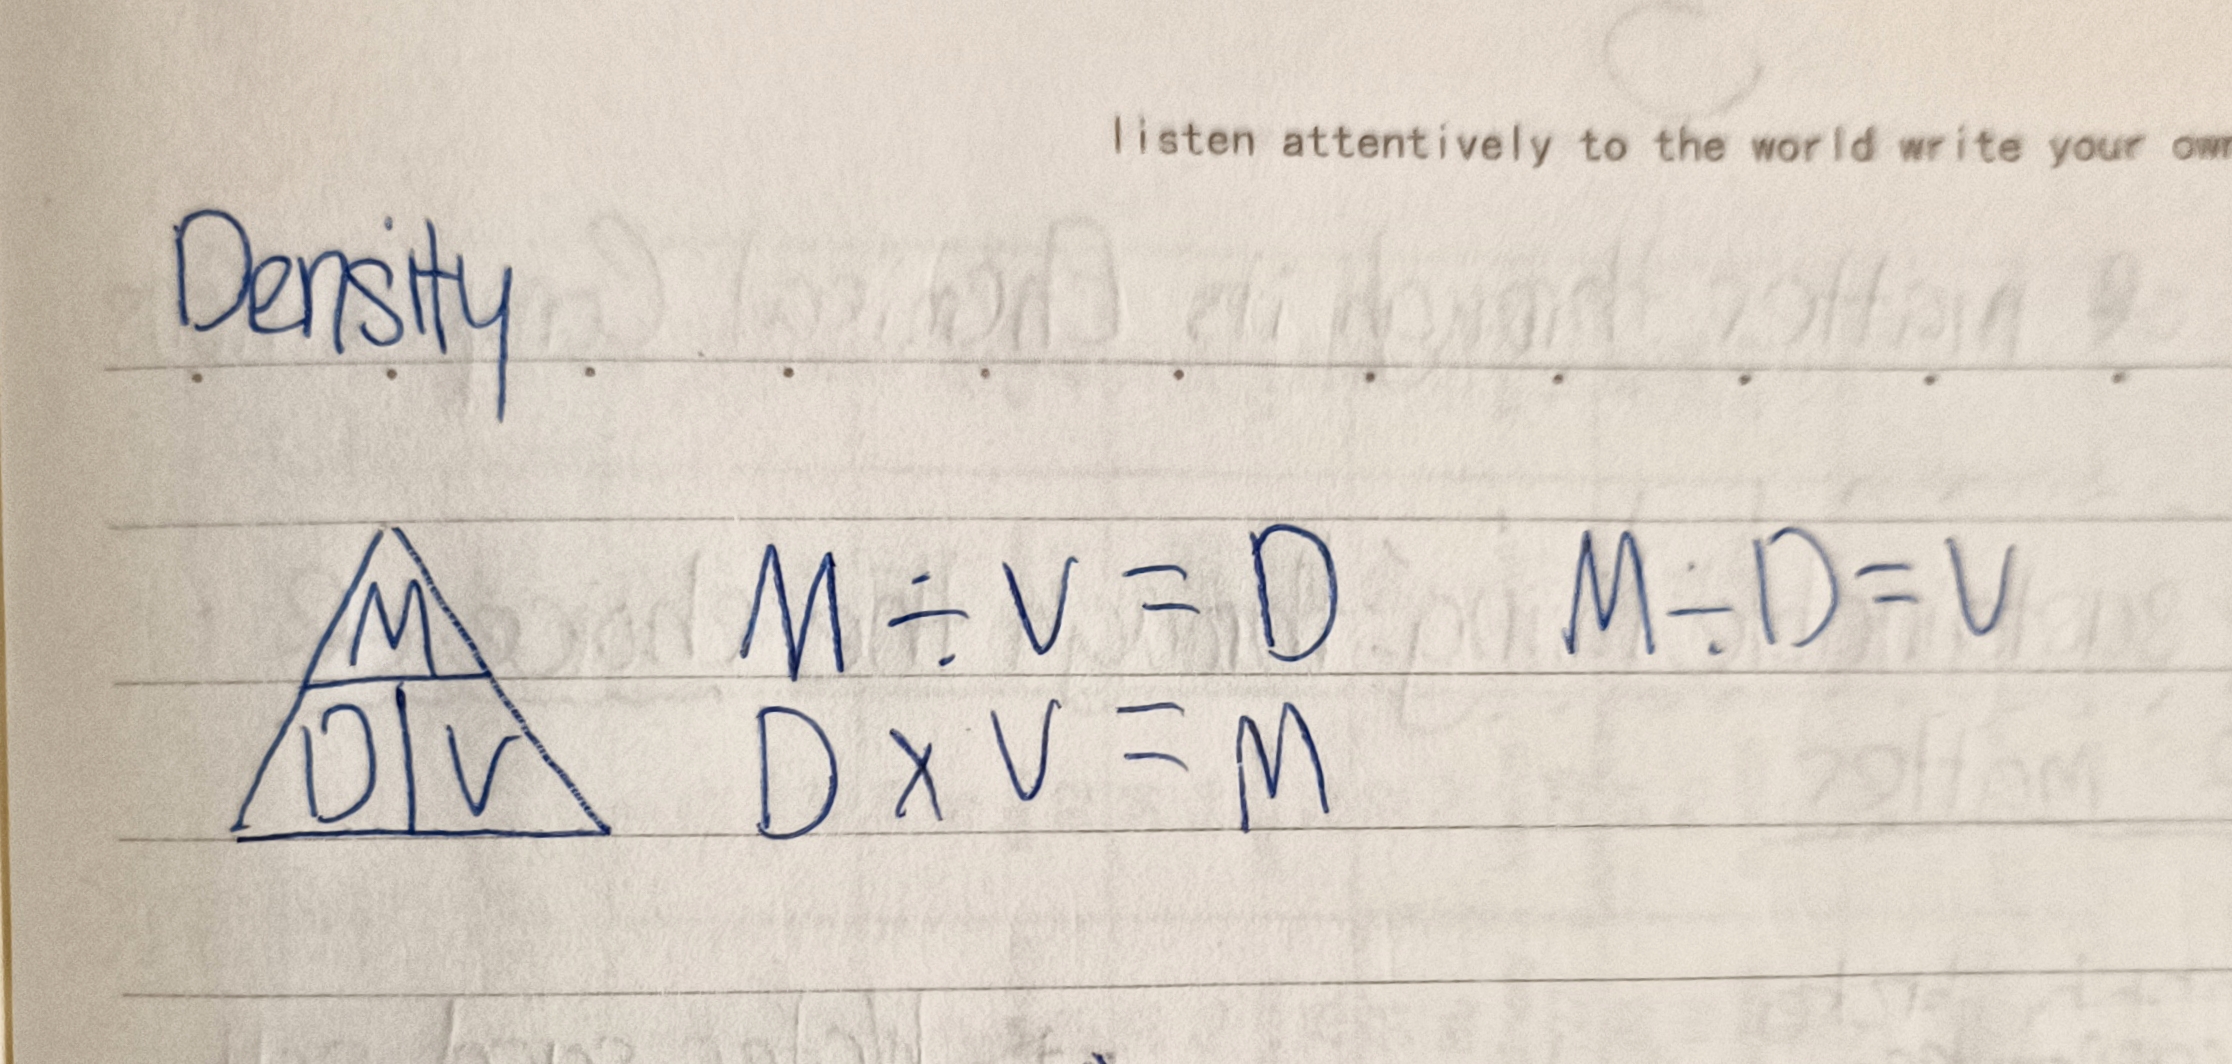 listen attentively to the world write your own
Density
M
D V
M ÷ V = D M ÷ D = V
D x V = M